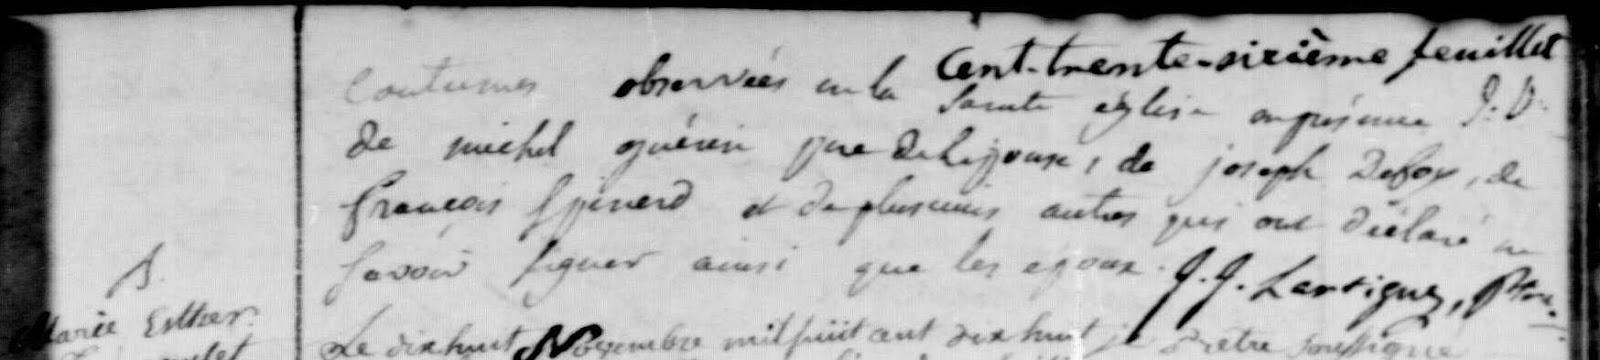 Cent-trente-sixième feuillet
Coutumes observées en la Sainte église en présence J. V.
de michel guérin père de l'époux, de joseph Defoy, de
françois Spinard et de plusieurs autres qui ont déclaré ne
savoir signer ainsi que les époux. J. J. Lartigue, Ptre.
B.
Marie Esther
Le dix huit Novembre mil huit cent dix huit je Prêtre soussigné